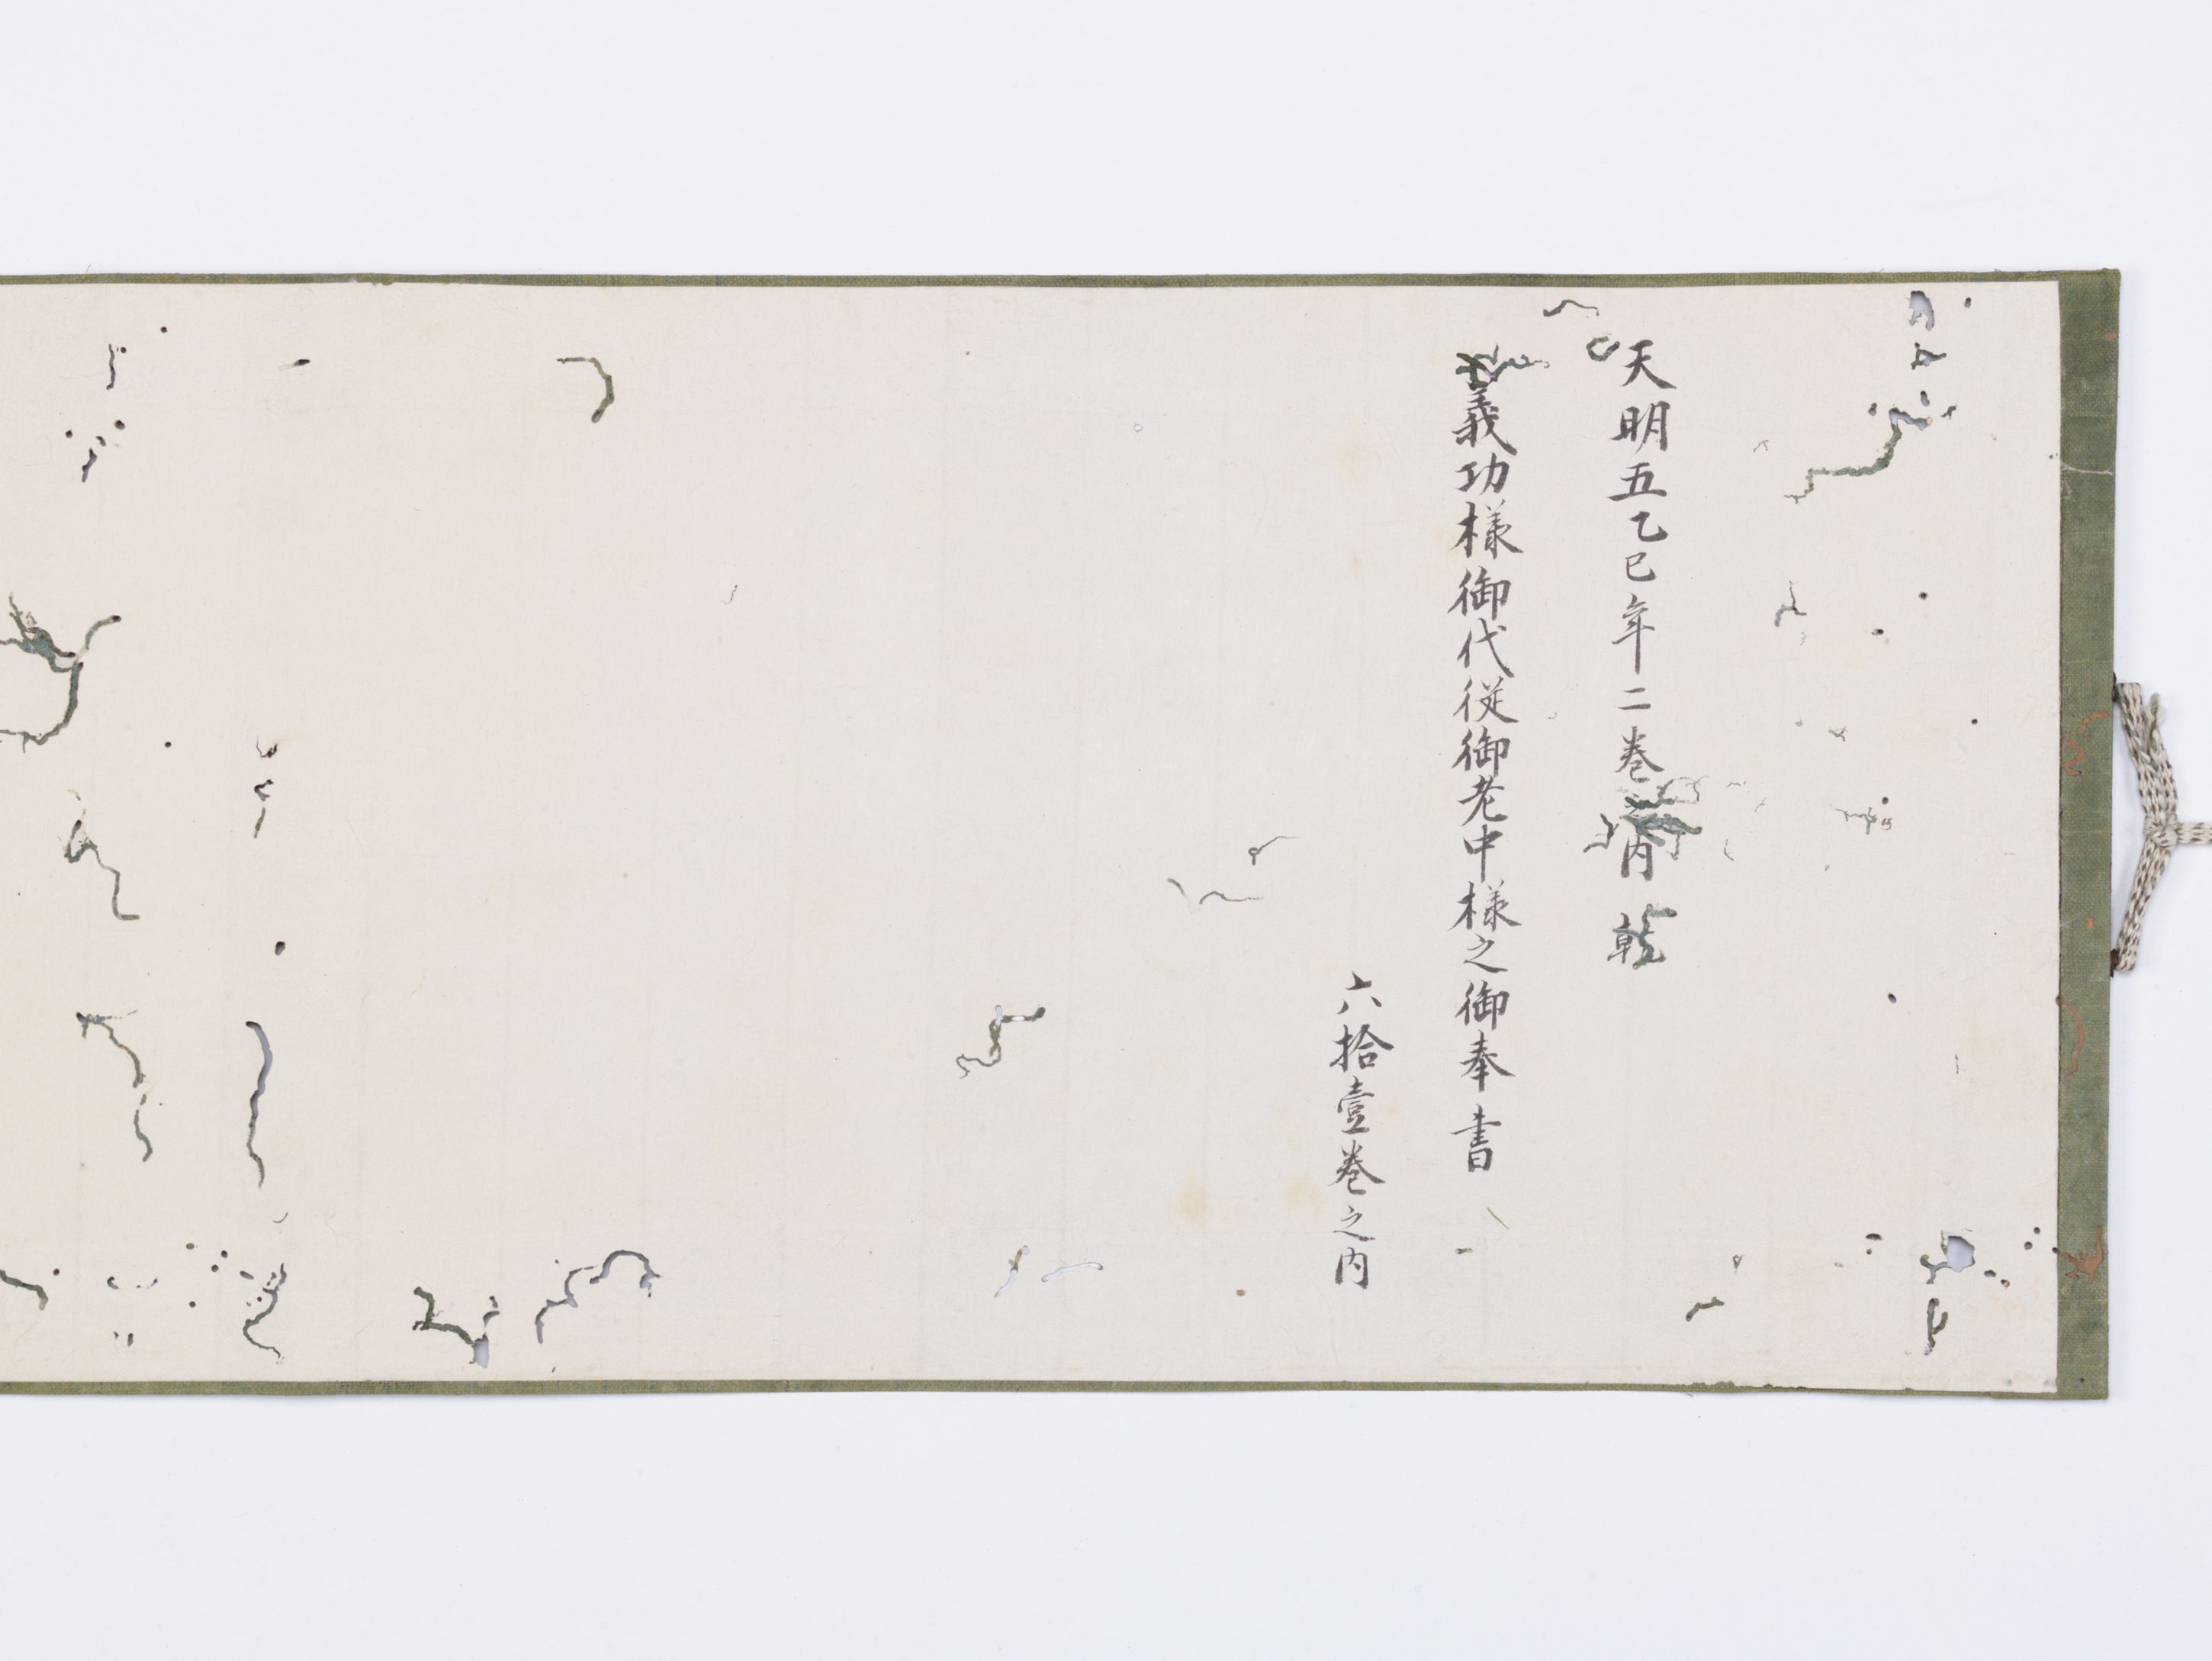 天明五乙巳年二巻之内　乾
義功様御代従御老中様之御奉書
六拾壹巻之内